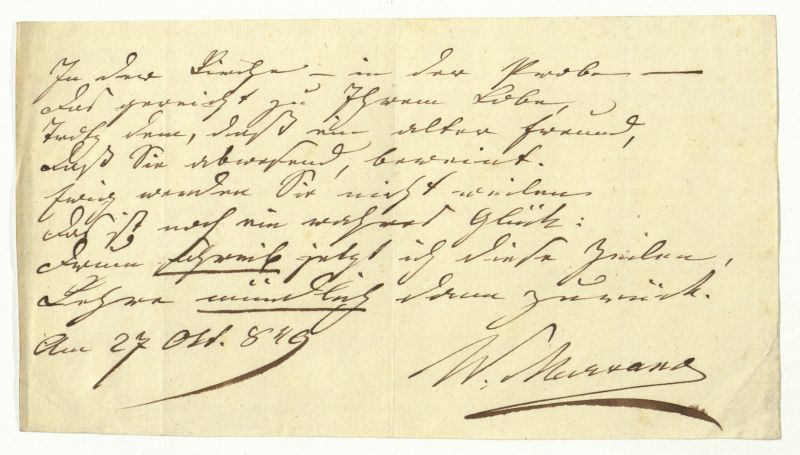 In der Kirche – in der Probe –
Das gereicht zu Ihrem Lobe,
Trotz dem, daß ein alter Freund,
Daß Sie abwesend, beweint.
Ewig werden Sie nicht weilen
Das ist noch ein wahres Glück:
Drum schreib jetzt ich diese Zeilen,
Kehre mündlich dann zurück.
Am 27 Okt. 849
W. Marsano